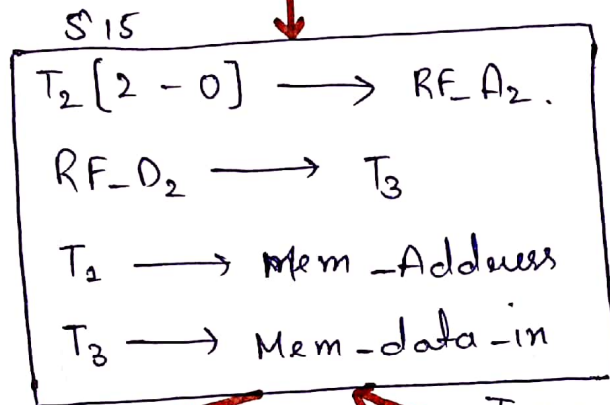 S15
T₂ [2 - 0] ⟶ RF_A₂.
RF_D₂ ⟶ T₃
T₁ ⟶ Mem_Address
T₃ ⟶ Mem-data-in